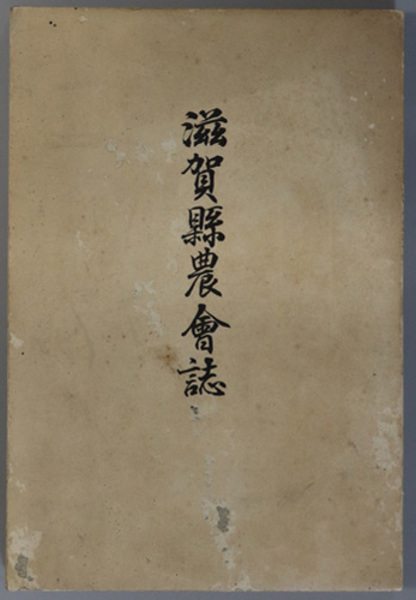 滋賀縣農會誌